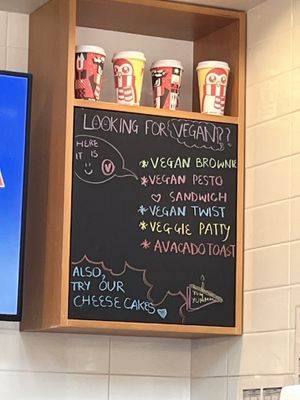 LOOKING FOR VEGAN??
HERE
IT IS
V
*VEGAN BROWNIE
*VEGAN PESTO
SANDWICH
*VEGAN TWIST
*VEGGIE PATTY
*AVACADO TOAST
ALSO,
TRY OUR
CHEESE CAKES
YUM
YUMMM